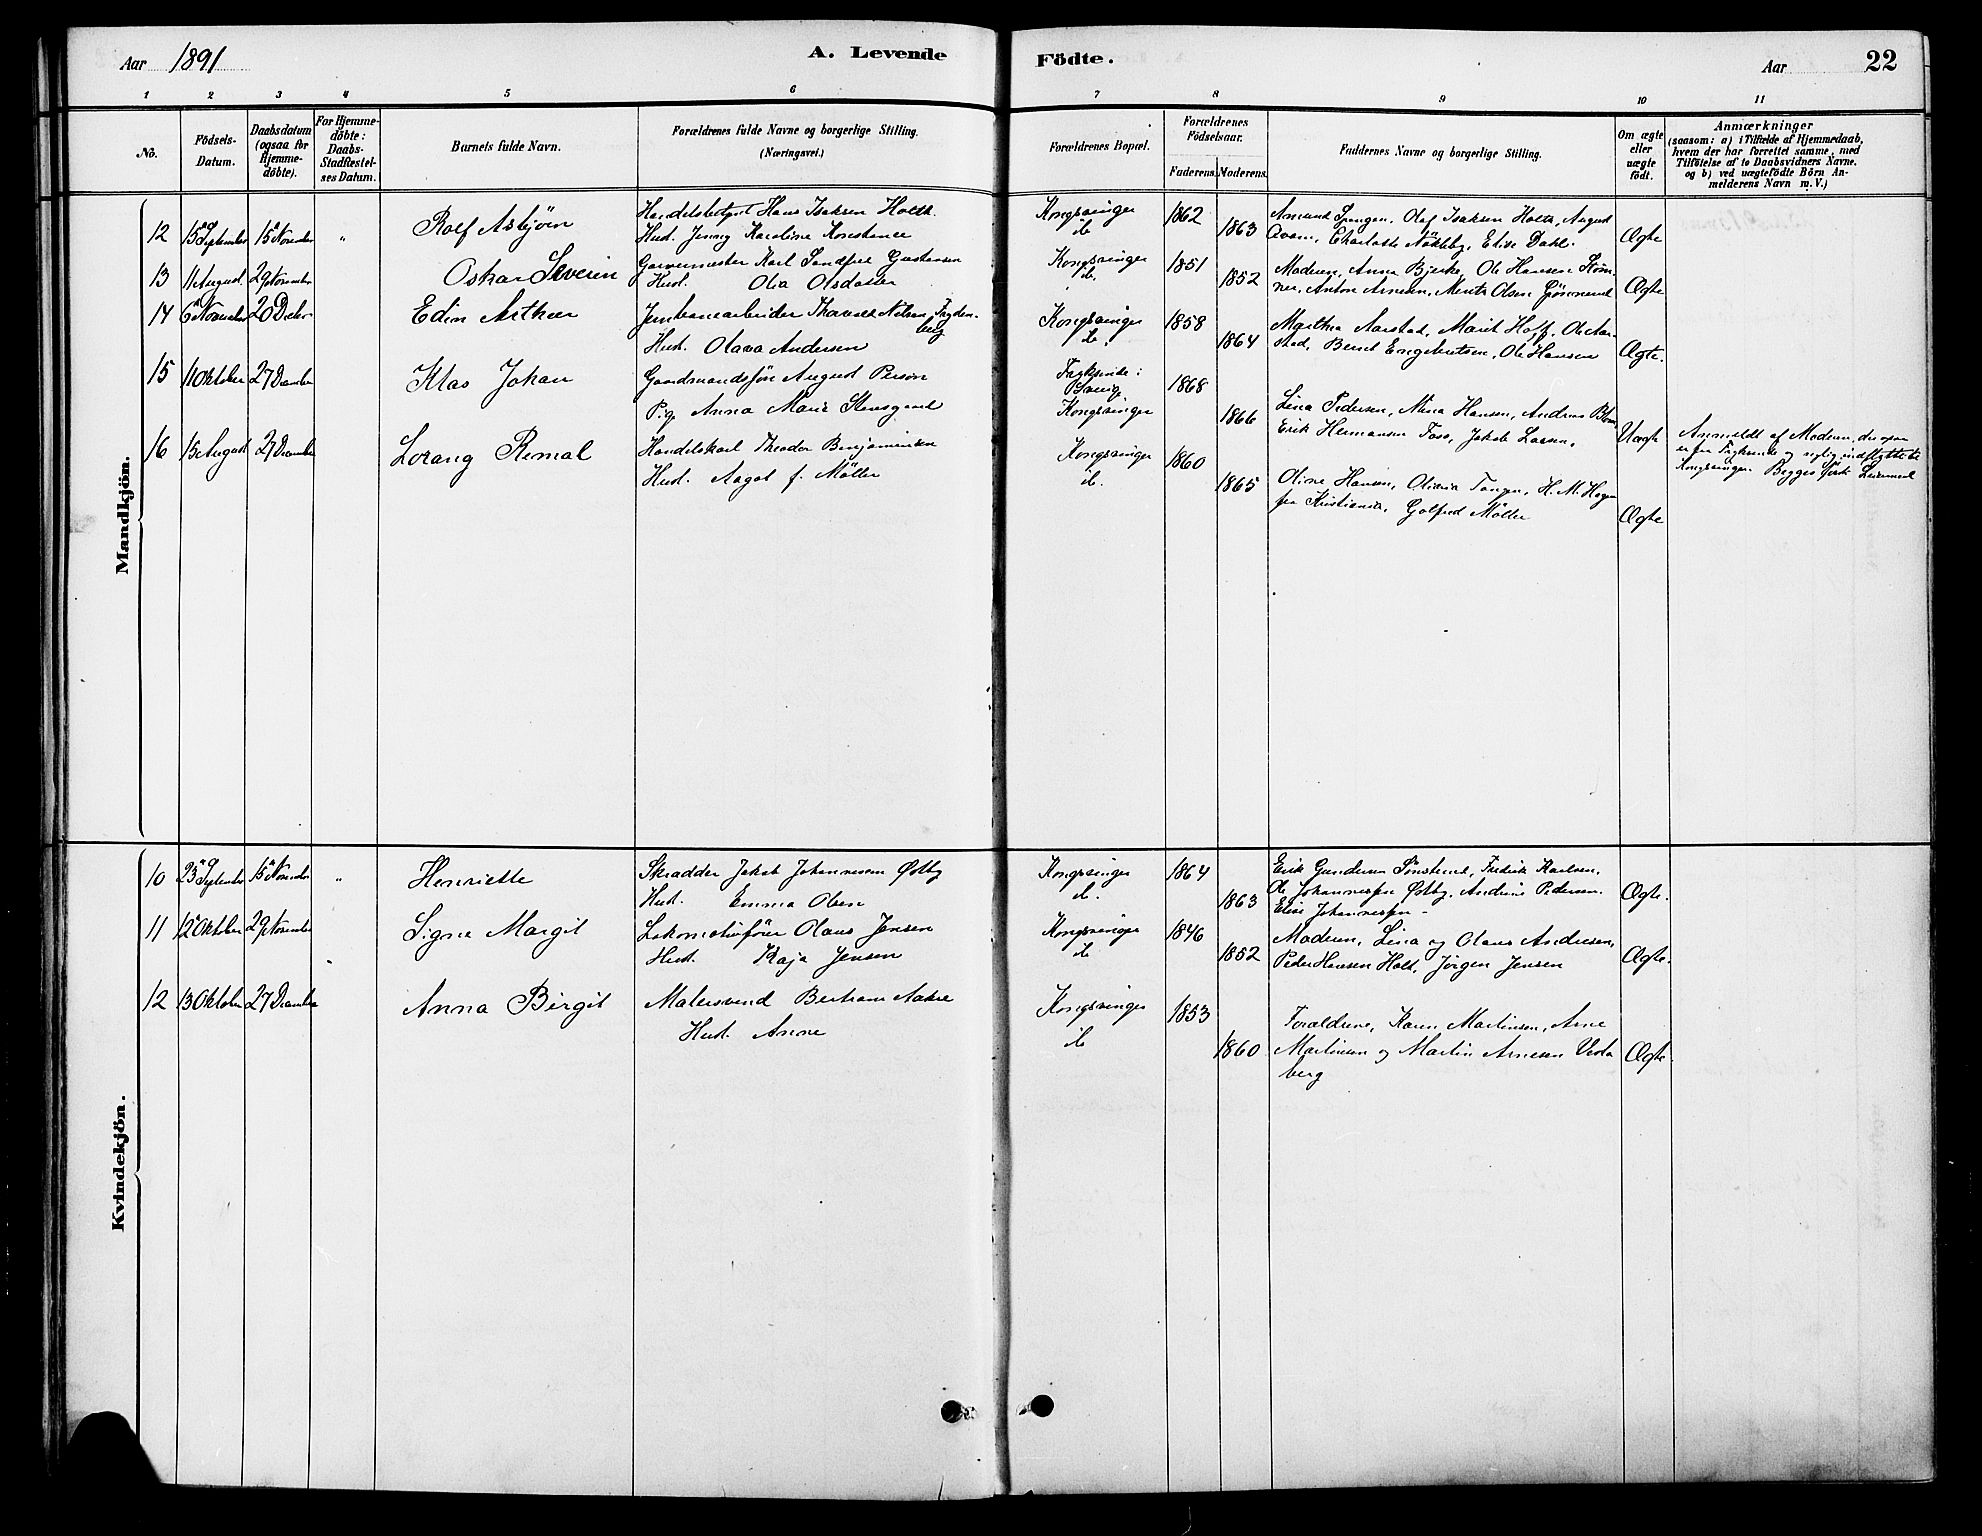 Aar 1891
A. Levende
Födte.
Aar
22
1 2 3 4 5 6 7 8 9 10 11
No.
Födsels-
Datum.
Daabsdatum
(ogsaa for
Hjemme-
döbte).
For Hjemme-
döbte:
Daabs-
Stadfæstel-
ses Datum.
Barnets fulde Navn.
Forældrenes fulde Navne og borgerlige Stilling.
(Næringsvei.)
Forældrenes Bopæl.
Forældrenes
Födselsaar.
Faderens. Moderens.
Faddernes Navne og borgerlige Stilling.
Om ægte
eller
uægte
födt.
Anmærkninger
(saasom: a) i Tilfælde af Hjemmedaab,
hvem der har forrettet samme, med
Tilföielse af to Daabsvidners Navne,
og b) ved uægtefödte Börn An-
melderens Navn m. V.)
Mandkjön.
12 15 September 15 November " Rolf Asbjörn
Hans Isaksen Holth.
Hust. Jenny Karoline Konstance
Kongsvinger 1862
do 1863
Amund Spangen, Olef Isaksen Holth, August
Charlotte Nökleby, Elise Dahl. Ægte
13 11 August 29 November Oskar Severin
Garvermester Karl Gustavsen
Hust. Olia Olsdatter
Kongsvinger 1851
do. 1852
Moderen, Anna Bjerke, Ole Hansen
Anton Arnesen, Olsen Ægte
14 6 November 20 Decbr Edin Arthur
Jernbanearbeider Nilsen Fryden-
berg
Hust. Olava Andersen
Kongsvinger 1858
do 1864
Marthea Aarstad, Marit Hoff, Ole Aar-
stad, Bernt Engebretsen, Ole Hansen Ægte.
15 11 Oktober 27 December Klas Johan
Gaardmandssön August Person
Pige Anna Marie Stensgaard
1868
Kongsvinger 1866
Lina Pedersen, Mina Hansen, Andreas
Erik Hermansen Foss, Jakob Larsen. Uægte
Anmeldt af Moderen, der
er fra og nylig indflyttet til
Kongsvinger. Begges förste Leiermaal
16 15 August 27 December Lorang Remal
Handelskarl Theodor Benjaminsen
Hust. Aagot f. Möller
Kongsvinger 1860
do. 1865
Oline Hansen, H. M. Hagen
fra Kristiania, Golfred Möller Ægte
Kvindekjön.
10 23 September 15 November " Henriette
Skrædder Jakob Johannesen Østby
Hust. Emma Olsen
Kongsvinger 1864
do. 1863
Erik Gundersen Fredrik Karlsen,
Ole Johannessen Østby, Andrine Pedersen.
Elise Johannessen. Ægte.
11 12 Oktober 29 November Signe Margit
Lokomotivförer Olaus Jensen
Hust. Kaja Jensen
Kongsvinger 1846
do 1852
Moderen, Lina og Olaus Andresen,
Peder Hansen Holt, Jørgen Jensen Ægte.
12 13 Oktober 27 December Anna Birgit
Malersvend Bertram Aakre
Hust. Anne
Kongsvinger 1853
do 1860
Forældrene, Karen Martinsen, Arne
Martinsen og Martin Arnesen Vesta
berg Ægte.